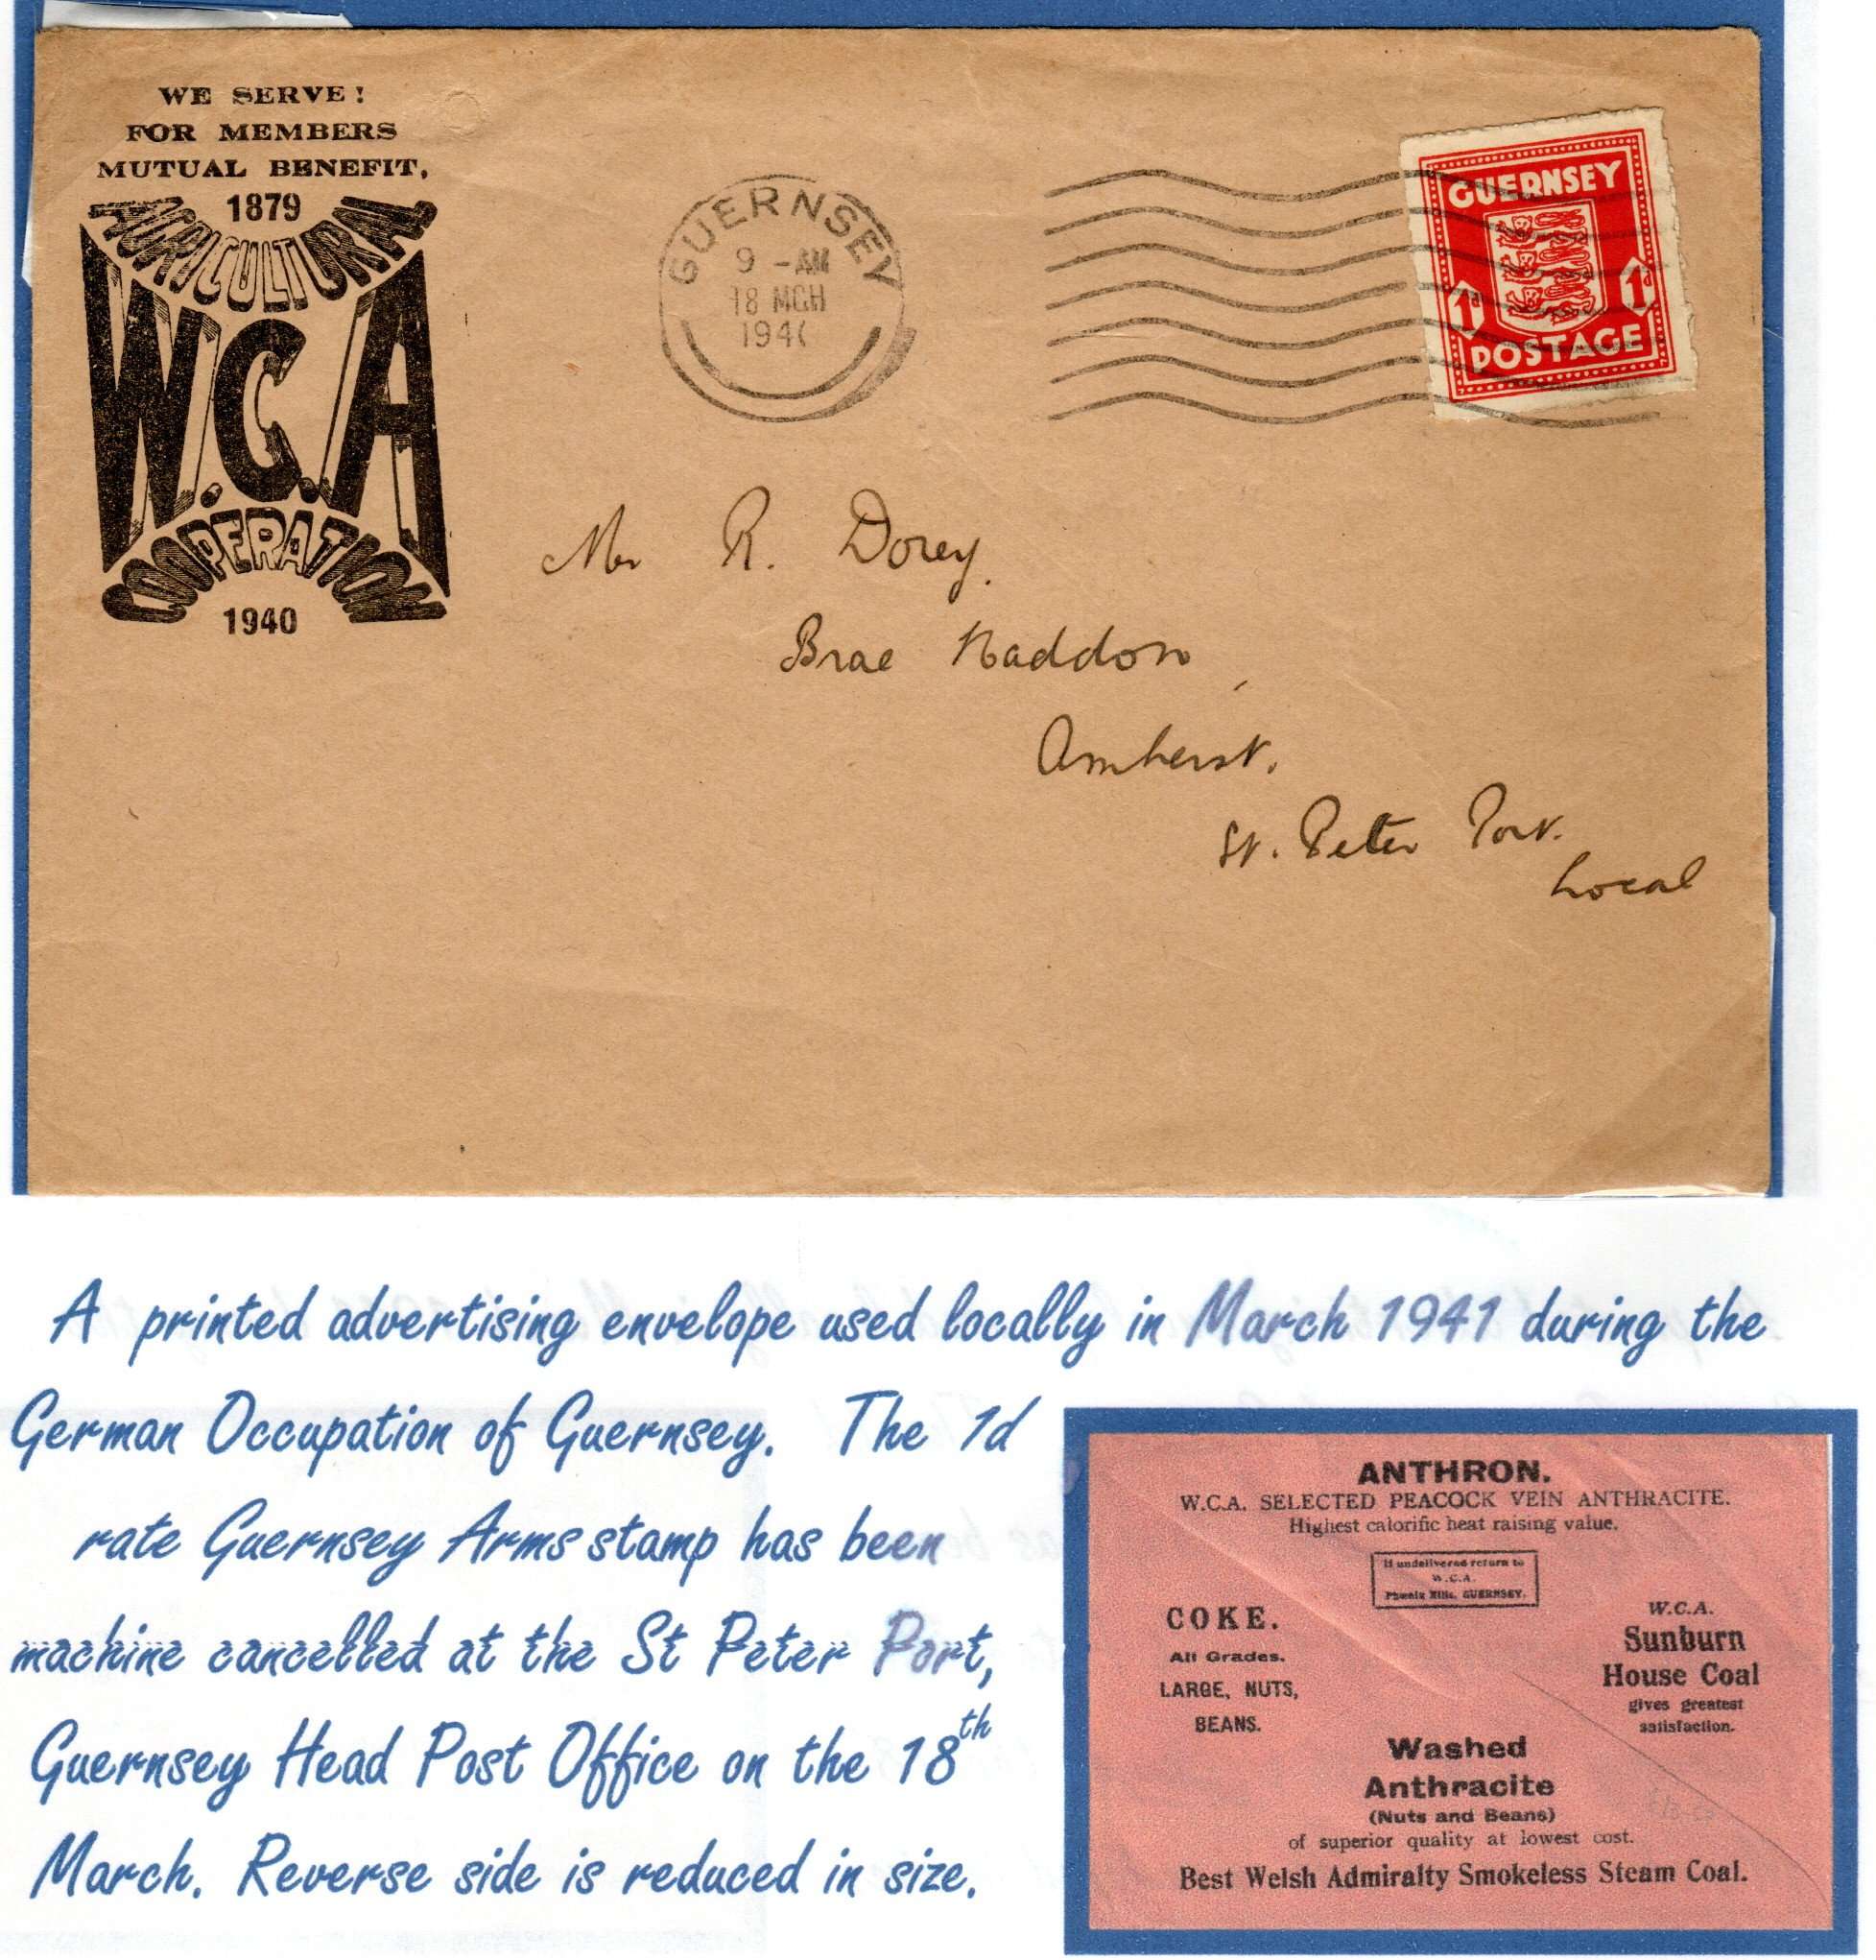 WE SERVE!
FOR MEMBERS
MUTUAL BENEFIT,
1879
AGRICULTURAL
W.C.A
COOPERATION
1940
GUERNSEY
9 -AM
18 MCH
194
GUERNSEY
1d 1d
POSTAGE
Mr R. Dorey.
Brae Haddon,
Amherst.
St. Peter Port.
Local
A printed advertising envelope used locally in March 1941 during the
German Occupation of Guernsey. The 1d
rate Guernsey Arms stamp has been
machine cancelled at the St Peter Port,
Guernsey Head Post Office on the 18th
March. Reverse side is reduced in size.
ANTHRON.
W.C.A. SELECTED PEACOCK VEIN ANTHRACITE.
Highest calorific heat raising value.
If undelivered return to
W.C.A.
Phoenix Mills, GUERNSEY.
COKE.
All Grades.
LARGE, NUTS,
BEANS.
W.C.A.
Sunburn
House Coal
gives greatest
satisfaction.
Washed
Anthracite
(Nuts and Beans)
of superior quality at lowest cost.
Best Welsh Admiralty Smokeless Steam Coal.